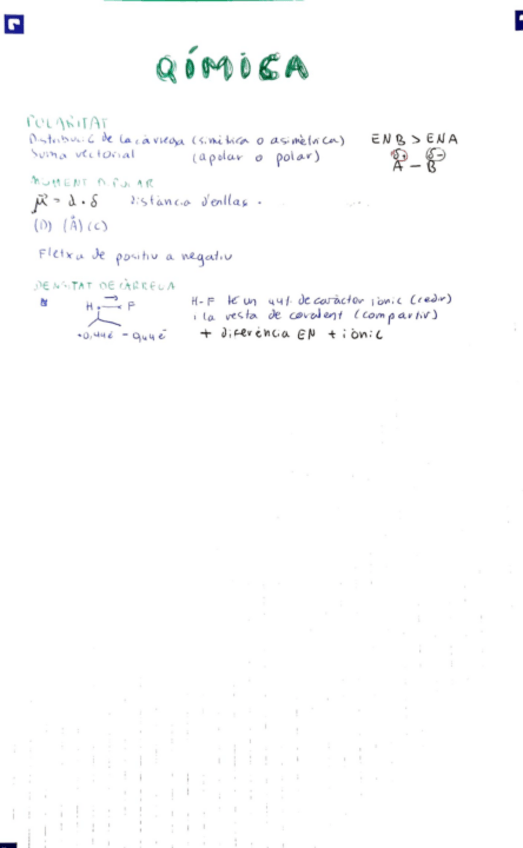 QÍMICA
POLARITAT
Distribució de la càrrega (simètrica o asimètrica) ENB > ENA
Suma vectorial (apolar o polar) δ+ δ-
A — B
MOMENT DIPOLAR
μ⃗ = d · δ distància d'enllaç.
(D) (Å) (C)
Fletxa de positiu a negatiu
DENSITAT DE CÀRREGA
H — F H-F té un 44% de caràcter iònic (cedir)
i la resta de covalent (compartir)
+0,44e⁻ -0,44e⁻ + diferència EN + iònic